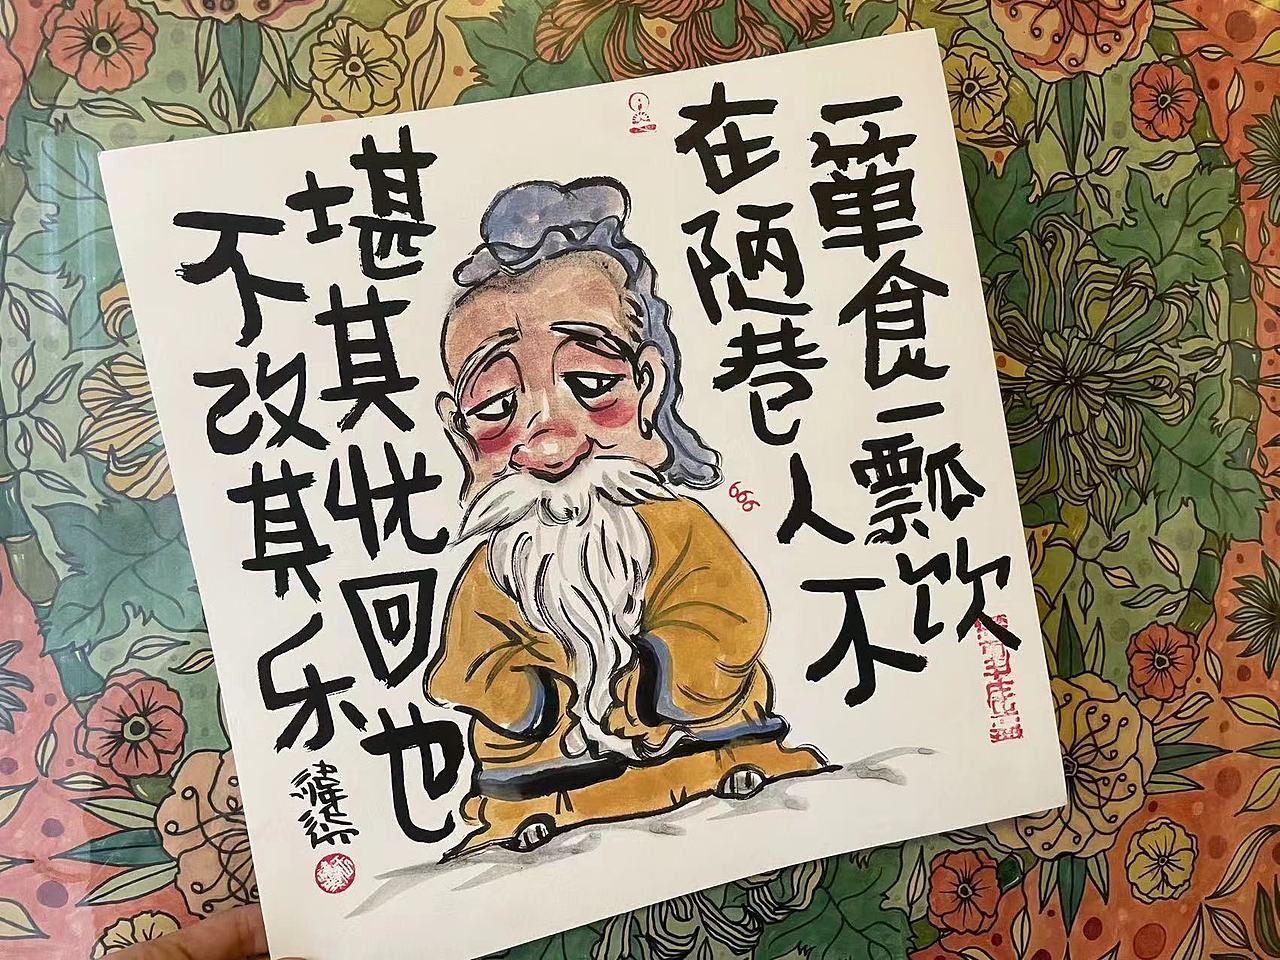 一箪食一瓢饮
在陋巷人不
堪其忧回也
不改其乐
666